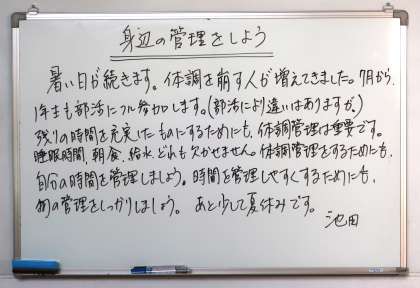 身辺の管理をしよう
暑い日が続きます。体調を崩す人が増えてきました。7月から、
1年生も部活にフル参加します。(部活により違いはありますが。)
残りの時間を充実したものにするためにも、体調管理は重要です。
睡眠時間、朝食、給水、どれも欠かせません。体調管理をするためにも、
自分の時間を管理しましょう。時間を管理しやすくするためにも、
物の管理をしっかりしましょう。あと少しで夏休みです。
池田